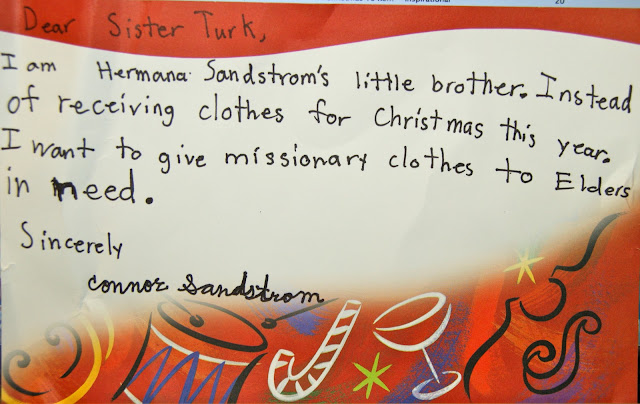 Inspirational
20
Dear Sister Turk,
I am Hermana Sandstrom's little brother. Instead
of receiving clothes for Christmas this year.
I want to give missionary clothes to Elders
in need.
Sincerely
Connor Sandstrom